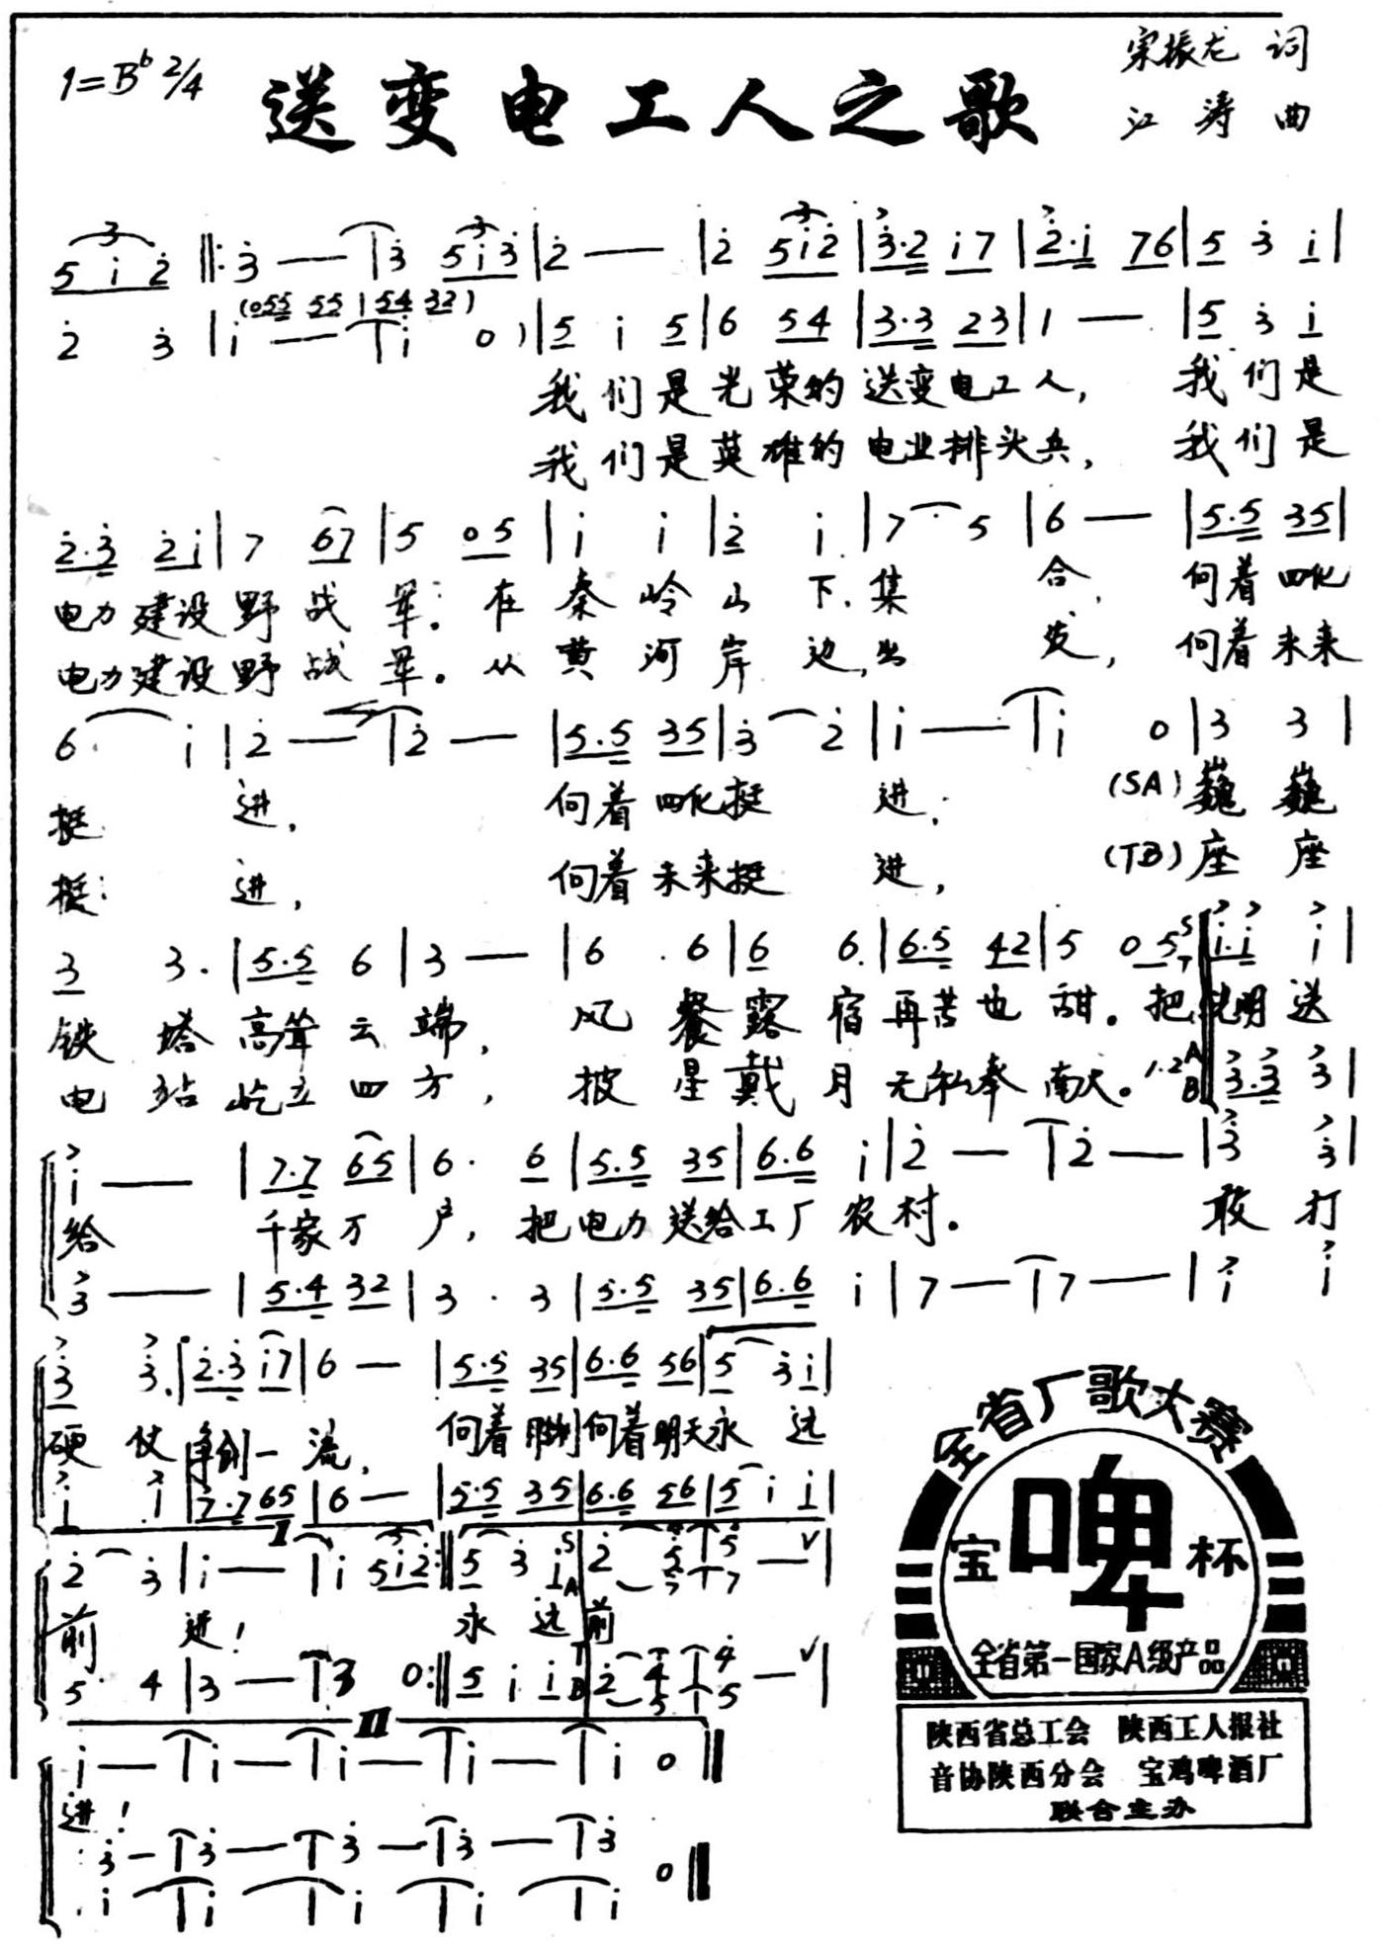 1=B♭ 2/4
送变电工人之歌
宋振龙 词
江涛 曲
5 i 2 ‖: 3 — | 3 5 i 3 | 2 — | 2 5 i 2 | 3·2 i 7 | 2·i 76 | 5 3 i |
(055 55 | 54 32)
2 3 | i — | i 0 ) | 5 i 5 | 6 54 | 3·3 23 | 1 — | 5 3 i
我们是光荣的送变电工人, 我们是
我们是英雄的电业排头兵, 我们是
2·3 2i | 7 67 | 5 05 | i i | 2 i. | 7 · 5 | 6 — | 5·5 35 |
电力建设野战军。在秦岭山下集合, 向着四化
电力建设野战军。从黄河岸边出发, 向着未来
6· i | 2 — | 2 — | 5·5 35 | 3 2 | i — | i 0 | 3 3 |
挺进, 向着四化挺进. (SA) 巍巍
挺进, 向着未来挺进, (TB) 座座
3 3· | 5·5 6 | 3 — | 6 · 6 | 6 6. | 6·5 42 | 5 0 5 | i·i i |
铁塔高耸云端, 风餐露宿再苦也甜。把光明送
电站屹立四方, 披星戴月无私奉献。 1.2 3·3 3 |
i — | 7·7 65 | 6· 6 | 5·5 35 | 6·6 i | 2 — | 2 — | 3 3 |
给千家万户, 把电力送给工厂农村。 敢打
3 — | 5·4 32 | 3 · 3 | 5·5 35 | 6·6 i | 7 — | 7 — | i i
3 3. | 2·3 i7 | 6 — | 5·5 35 | 6·6 56 | 5 3i |
硬仗争创一流, 向着胜利向着明天永远
i i | 7·7 65 | 6 — | 5·5 35 | 6·6 56 | 5 i i |
I
2 3 | i — | i 5i2 :‖ 5 3 i | 2 5 | 5 — |
前进! 永远前
5· 4 | 3 — | 3 0 :‖ 5 i i | 2 4 | 4 — |
II
i — | i — | i — | i — | i 0 ‖
进!
3 — | 3 — | 3 — | 3 — | 3 0 ‖
i | i | i | i | i
全省厂歌大赛
宝啤杯
全省第一国家A级产品
陕西省总工会 陕西工人报社
音协陕西分会 宝鸡啤酒厂
联合主办